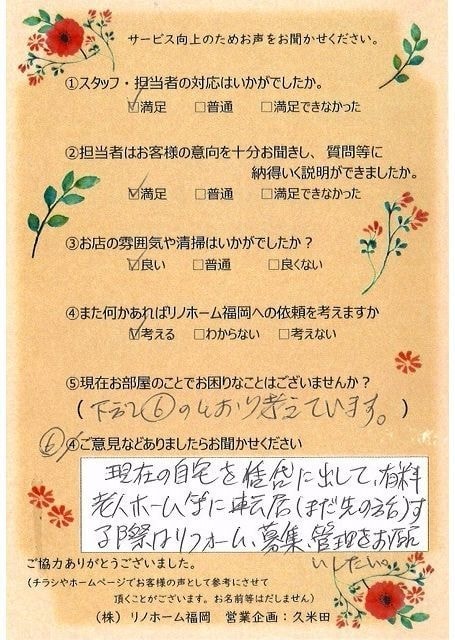 サービス向上のためお声をお聞かせください。
①スタッフ・担当者の対応はいかがでしたか。
☑満足 □普通 □満足できなかった
②担当者はお客様の意向を十分お聞きし、質問等に
納得いく説明ができましたか。
☑満足 □普通 □満足できなかった
③お店の雰囲気や清掃はいかがでしたか？
☑良い □普通 □良くない
④また何かあればリノホーム福岡への依頼を考えますか
☑考える □わからない □考えない
⑤現在お部屋のことでお困りなことはございませんか？
(下記⑥のとおり考えています。)
⑥④ご意見などありましたらお聞かせください
現在の自宅を賃貸に出して、有料
老人ホーム等に転居(まだ先の話)す
る際はリフォーム、募集、管理をお願
いしたい。
ご協力ありがとうございました。
(チラシやホームページでお客様の声として参考にさせて
頂くことがございます。お名前等はだしません)
(株) リノホーム福岡 営業企画：久米田